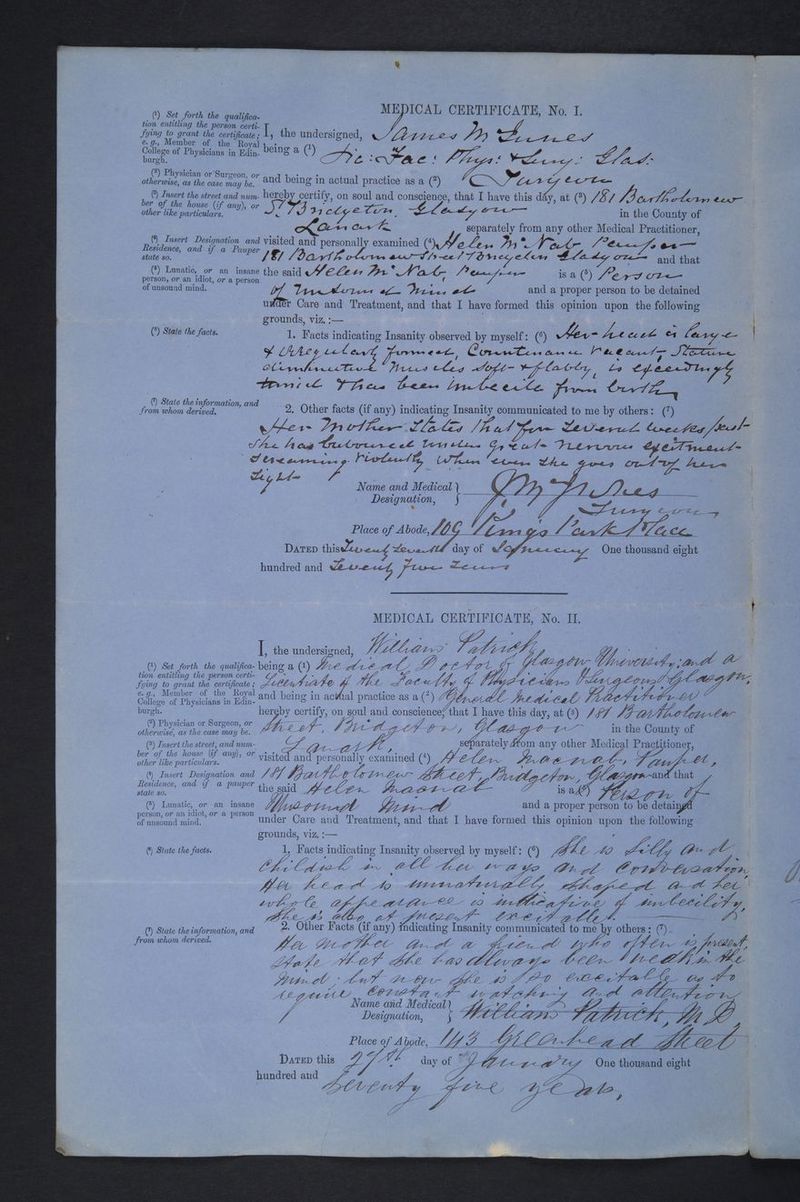 MEDICAL CERTIFICATE, No. I.
(¹) Set forth the qualifica-
tion entitling the person certi-
fying to grant the certificate;
e. g., Member of the Royal
College of Physicians in Edin-
burgh.
(²) Physician or Surgeon, or
otherwise, as the case may be.
(³) Insert the street and num-
ber of the house (if any), or
other like particulars.
(⁴) Insert Designation and
Residence, and if a Pauper
state so.
(⁵) Lunatic, or an insane
person, or an idiot, or a person
of unsound mind.
(⁶) State the facts.
(⁷) State the information, and
from whom derived.
I, the undersigned, James McInnes
being a (¹) Lic: Fac: Phys: & Surg: Glas:
and being in actual practice as a (²) Surgeon
hereby certify, on soul and conscience, that I have this day, at (³) 181 Bartholomew
St Bridgeton Glasgow in the County of
Lanark separately from any other Medical Practitioner,
visited and personally examined (⁴) Helen McNab Pauper
181 Bartholomew Street Bridgeton Glasgow and that
the said Helen McNab, Pauper is a (⁵) Person
of Unsound Mind and a proper person to be detained
under Care and Treatment, and that I have formed this opinion upon the following
grounds, viz.:—
1. Facts indicating Insanity observed by myself: (⁶) Her head is large
& irregularly formed, Countenance Vacant, Stature
diminutive Muscles soft & flabby, is exceedingly
timid & has been imbecile from birth
2. Other facts (if any) indicating Insanity communicated to me by others: (⁷)
Her Mother States that for Several weeks past
She has laboured under great nervous excitement
screaming violently when even she goes out of her
Sight
Name and Medical Designation, J McInnes
Surgeon
Place of Abode, 109 King's Park Place
DATED this Twenty Seventh day of January One thousand eight
hundred and Seventy five Years
MEDICAL CERTIFICATE, No. II.
(¹) Set forth the qualifica-
tion entitling the person certi-
fying to grant the certificate;
e. g., Member of the Royal
College of Physicians in Edin-
burgh.
(²) Physician or Surgeon, or
otherwise, as the case may be.
(³) Insert the street, and num-
ber of the house (if any), or
other like particulars.
(⁴) Insert Designation and
Residence, and if a pauper
state so.
(⁵) Lunatic, or an insane
person, or an idiot, or a person
of unsound mind.
(⁶) State the facts.
(⁷) State the information, and
from whom derived.
I, the undersigned, William Patrick
being a (¹) Medical Doctor of Glasgow University; and a
Licentiate of the Faculty of Physicians & Surgeons Glasgow,
and being in actual practice as a (²) General Medical Practitioner
hereby certify, on soul and conscience, that I have this day, at (³) 181 Bartholomew
Street, Bridgeton, Glasgow in the County of
Lanark, separately from any other Medical Practitioner,
visited and personally examined (⁴) Helen Macnab, Pauper,
181 Bartholomew Street, Bridgeton, Glasgow and that
the said Helen Macnab is a (⁵) Person of
Unsound Mind and a proper person to be detained
under Care and Treatment, and that I have formed this opinion upon the following
grounds, viz.:—
1. Facts indicating Insanity observed by myself: (⁶) She is silly and
childish in all her ways and conversation,
Her head is unnaturally shaped and her
whole appearance is indicative of imbecility,
She is also at present excitable.
2. Other Facts (if any) indicating Insanity communicated to me by others: (⁷)
Her Mother and a friend who often is present,
state that she has always been weak in the
mind; but now she is so excitable as to
require constant watching and attention
Name and Medical Designation, William Patrick, M D
Place of Abode, 143 Greenhead Street
DATED this 27th day of January One thousand eight
hundred and Seventy five years,